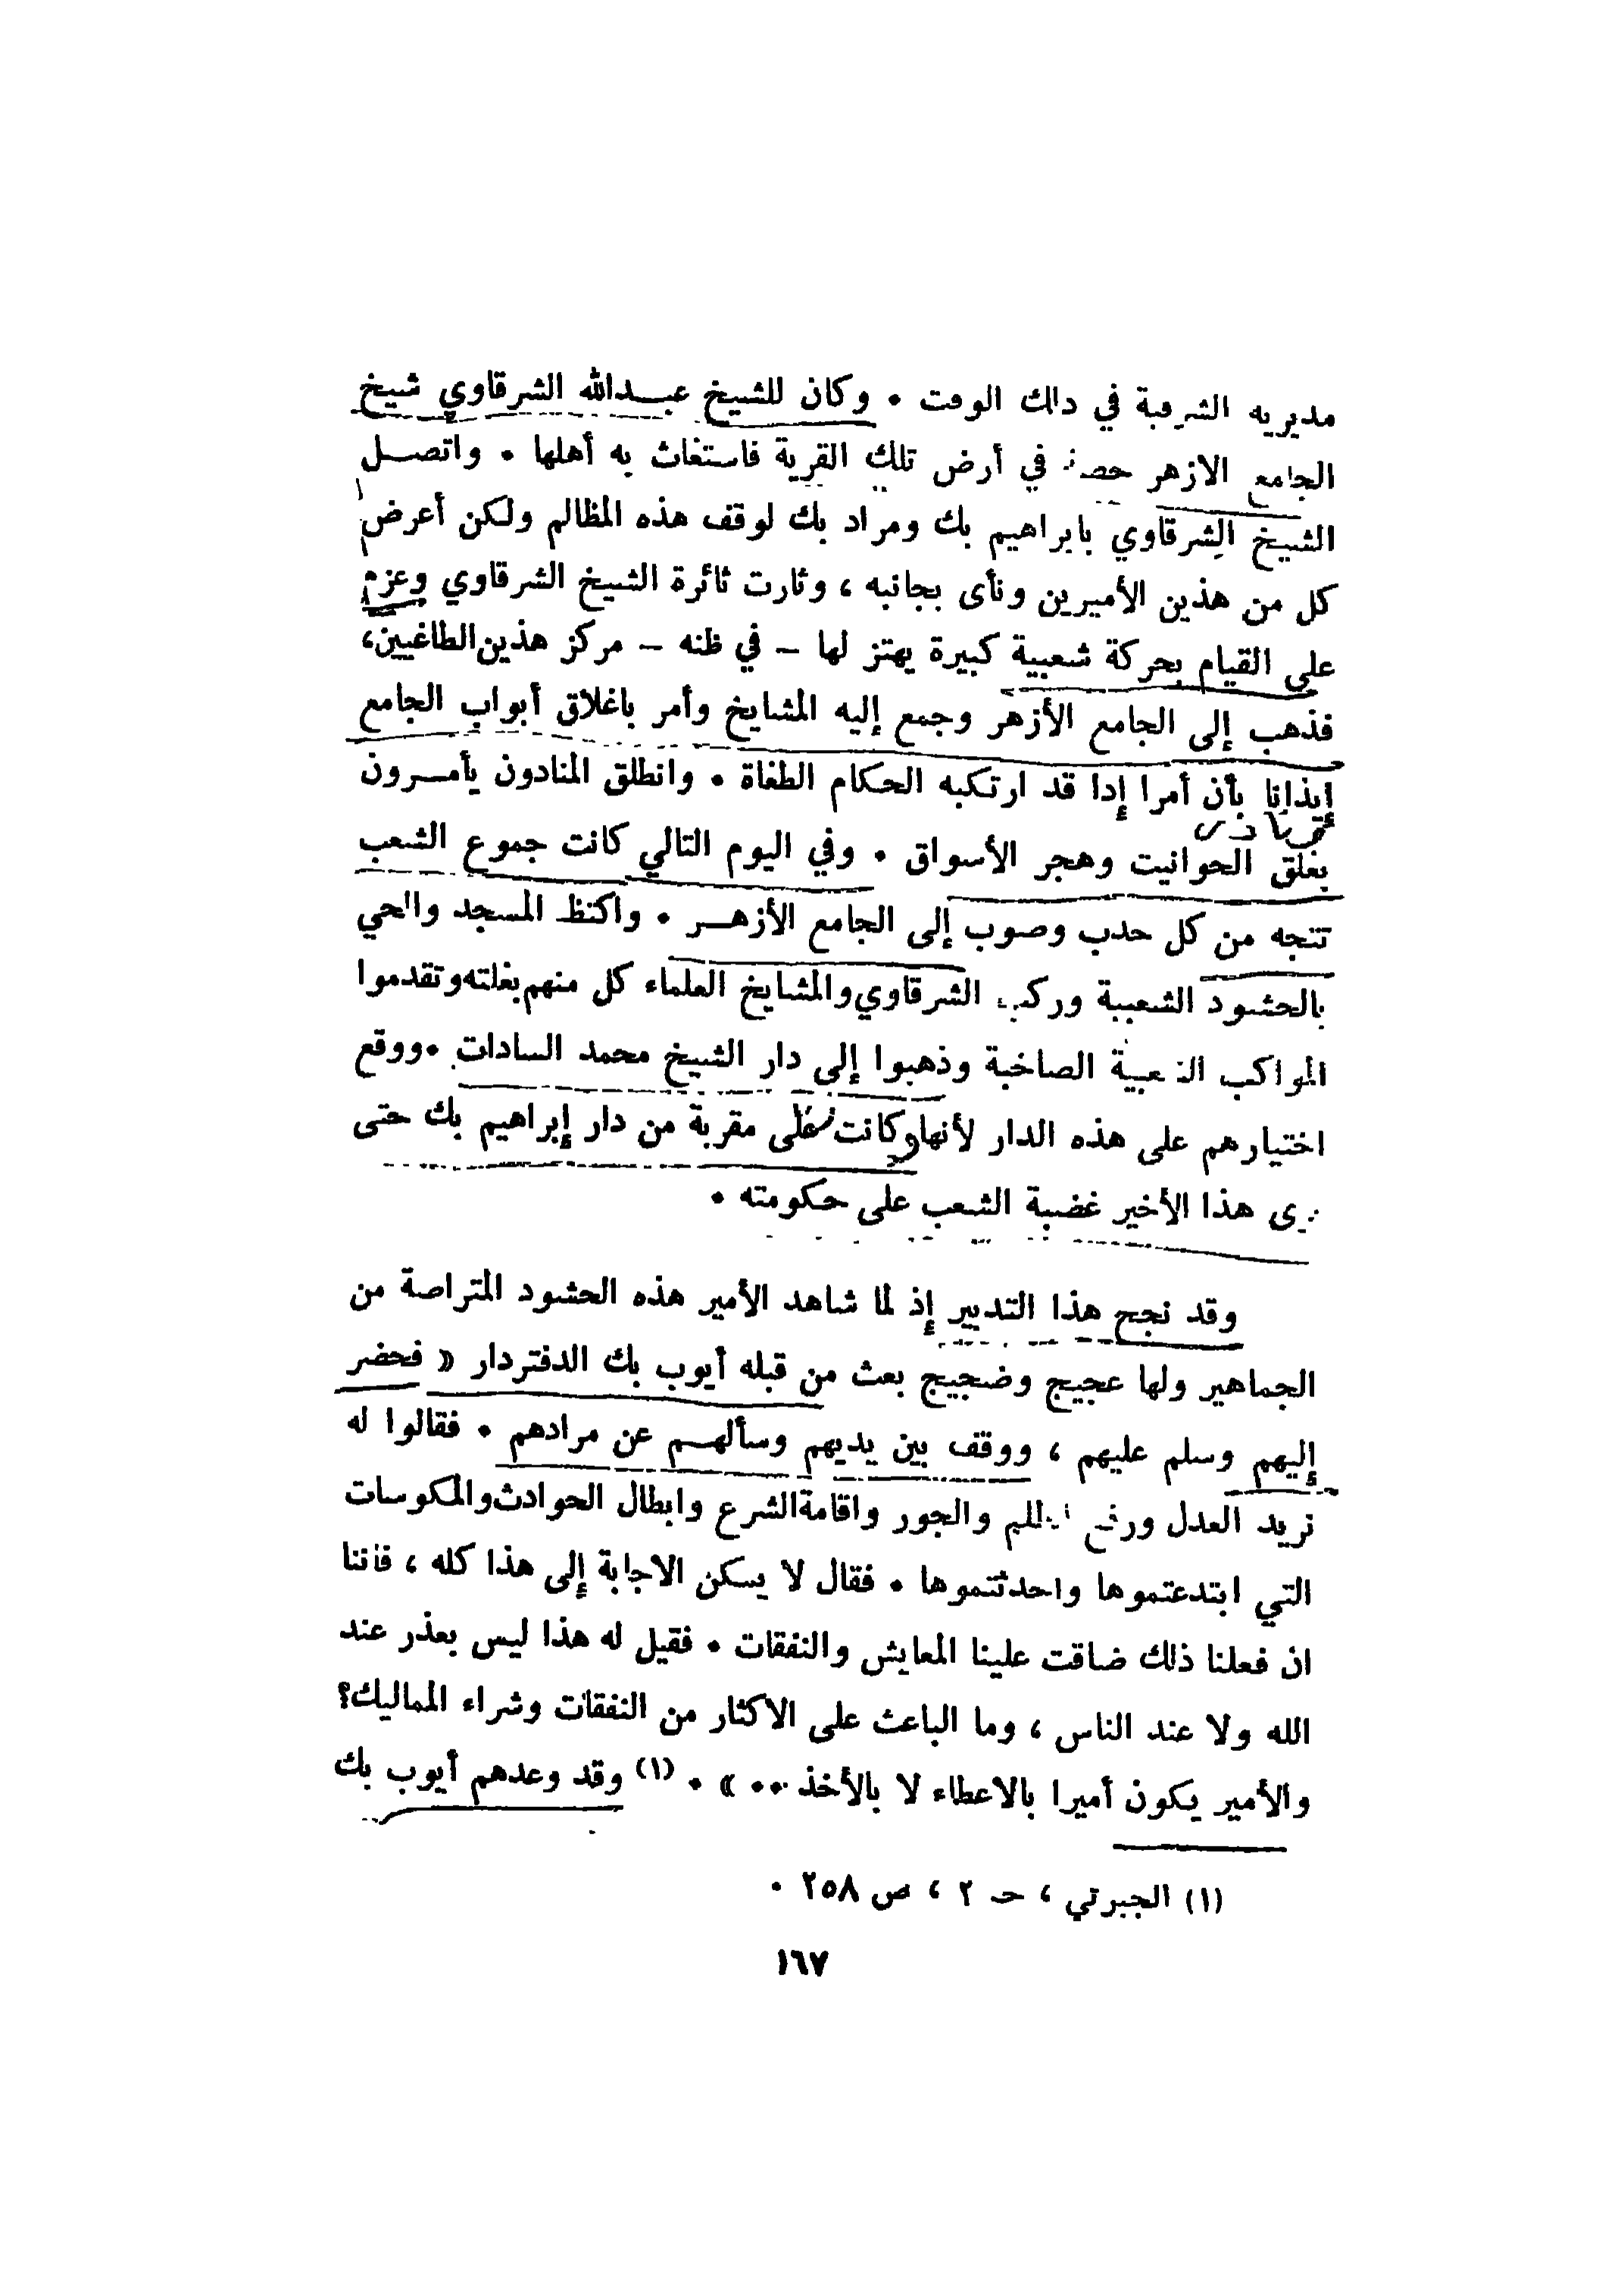 مديرية الشرقية في ذلك الوقت . وكان للشيخ عبدالله الشرقاوي شيخ
الجامع الازهر حصة في أرض تلك القرية فاستغاث به أهلها . واتصل
الشيخ الشرقاوي بابراهيم بك ومراد بك لوقف هذه المظالم ولكن أعرض
كل من هذين الأميرين ونأى بجانبه ، وثارت ثائرة الشيخ الشرقاوي وعزم
على القيام بحركة شعبية كبيرة يهتز لها – في ظنه – مركز هذين الطاغيين،
فذهب إلى الجامع الأزهر وجمع إليه المشايخ وأمر باغلاق أبواب الجامع
إيذانا بأن أمرا إدا قد ارتكبه الحكام الطغاة . وانطلق المنادون يأمرون
بغلق الحوانيت وهجر الأسواق . وفي اليوم التالي كانت جموع الشعب
تتجه من كل حدب وصوب إلى الجامع الأزهر . واكتظ المسجد والحي
بالحشود الشعبية وركب الشرقاوي والمشايخ العلماء كل منهم بغلته وتقدموا
المواكب الشعبية الصاخبة وذهبوا إلى دار الشيخ محمد السادات . ووقع
اختيارهم على هذه الدار لأنها كانت على مقربة من دار إبراهيم بك حتى
يرى هذا الأخير غضبة الشعب على حكومته .
وقد نجح هذا التدبير إذ لما شاهد الأمير هذه الحشود المتراصة من
الجماهير ولها عجيج وضجيج بعث من قبله أيوب بك الدفتردار « فحضر
إليهم وسلم عليهم ، ووقف بين يديهم وسألهم عن مرادهم . فقالوا له
نريد العدل ورفع الظلم والجور واقامة الشرع وابطال الحوادث والمكوسات
التي ابتدعتموها واحدثتموها . فقال لا يمكن الاجابة إلى هذا كله ، فاننا
ان فعلنا ذلك ضاقت علينا المعايش والنفقات . فقيل له هذا ليس بعذر عند
الله ولا عند الناس ، وما الباعث على الاكثار من النفقات وشراء المماليك؟
والأمير يكون أميرا بالاعطاء لا بالأخذ ... » . (١) وقد وعدهم أيوب بك
(١) الجبرتي ، حـ ٢ ، ص ٢٥٨ .
١٦٧